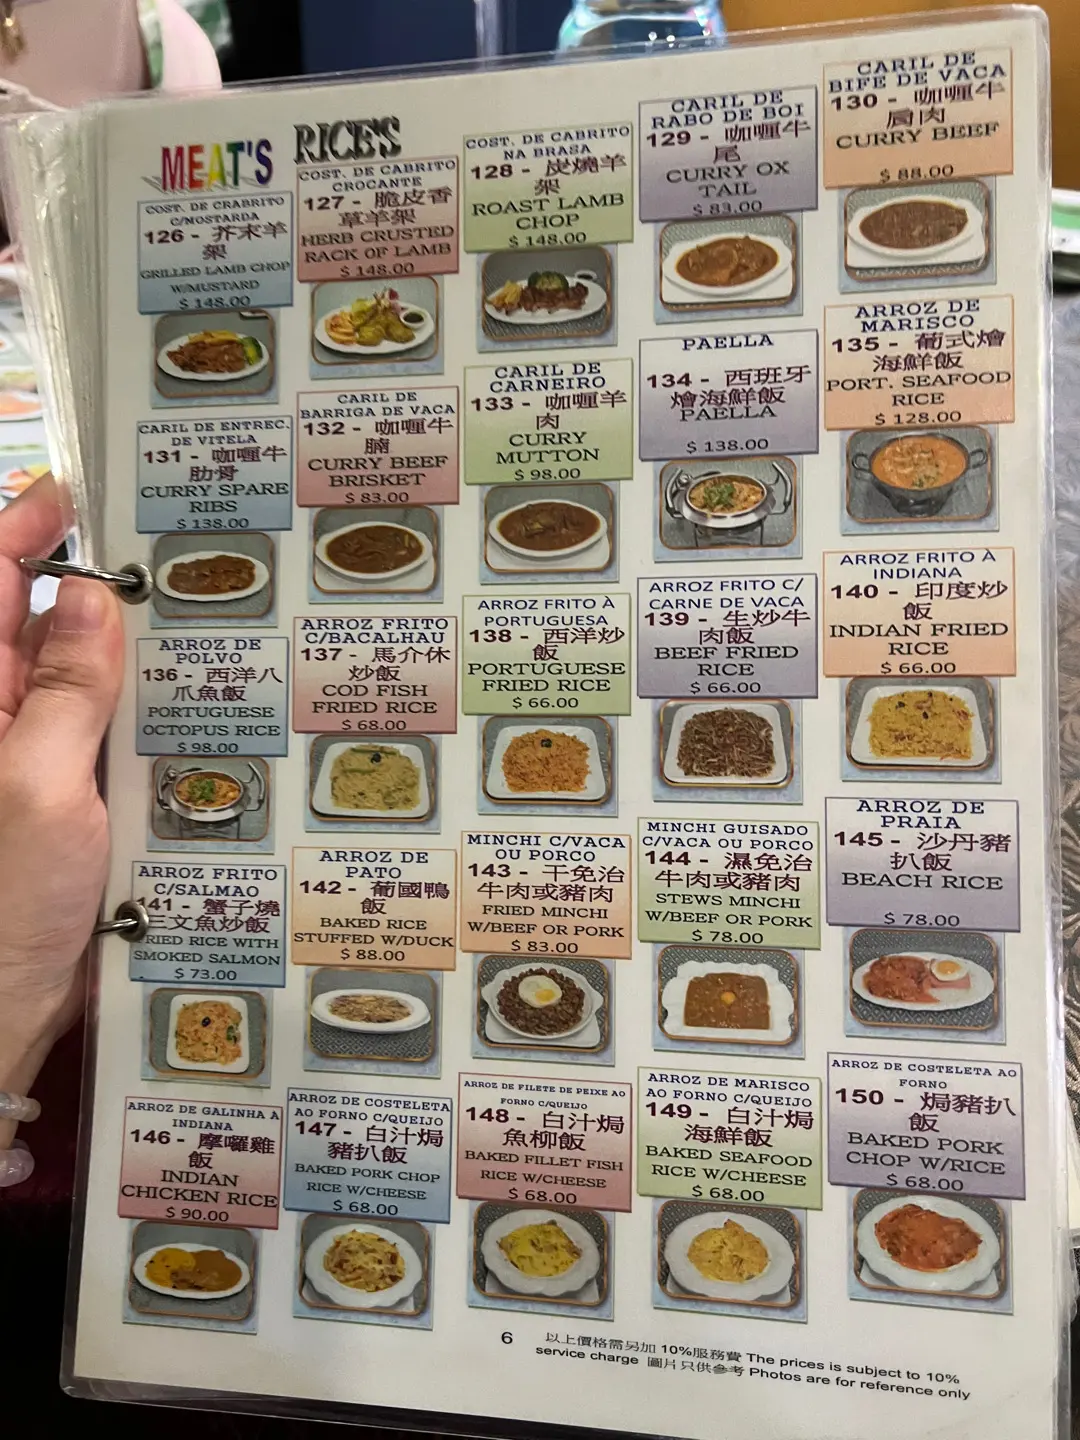 MEAT'S
RICE'S
COST. DE CRABRITO
C/MOSTARDA
126 - 芥末羊
架
GRILLED LAMB CHOP
W/MUSTARD
$ 148.00
COST. DE CABRITO
CROCANTE
127 - 脆皮香
草羊架
HERB CRUSTED
RACK OF LAMB
$ 148.00
COST. DE CABRITO
NA BRASA
128 - 炭燒羊
架
ROAST LAMB
CHOP
$ 148.00
CARIL DE
RABO DE BOI
129 - 咖喱牛
尾
CURRY OX
TAIL
$ 83.00
CARIL DE
BIFE DE VACA
130 - 咖喱牛
肩肉
CURRY BEEF
$ 88.00
CARIL DE ENTREC.
DE VITELA
131 - 咖喱牛
肋骨
CURRY SPARE
RIBS
$ 138.00
CARIL DE
BARRIGA DE VACA
132 - 咖喱牛
腩
CURRY BEEF
BRISKET
$ 83.00
CARIL DE
CARNEIRO
133 - 咖喱羊
肉
CURRY
MUTTON
$ 98.00
PAELLA
134 - 西班牙
燴海鮮飯
PAELLA
$ 138.00
ARROZ DE
MARISCO
135 - 葡式燴
海鮮飯
PORT. SEAFOOD
RICE
$ 128.00
ARROZ DE
POLVO
136 - 西洋八
爪魚飯
PORTUGUESE
OCTOPUS RICE
$ 98.00
ARROZ FRITO
C/BACALHAU
137 - 馬介休
炒飯
COD FISH
FRIED RICE
$ 68.00
ARROZ FRITO À
PORTUGUESA
138 - 西洋炒
飯
PORTUGUESE
FRIED RICE
$ 66.00
ARROZ FRITO C/
CARNE DE VACA
139 - 生炒牛
肉飯
BEEF FRIED
RICE
$ 66.00
ARROZ FRITO À
INDIANA
140 - 印度炒
飯
INDIAN FRIED
RICE
$ 66.00
ARROZ FRITO
C/SALMAO
141 - 蟹子燒
三文魚炒飯
FRIED RICE WITH
SMOKED SALMON
$ 73.00
ARROZ DE
PATO
142 - 葡國鴨
飯
BAKED RICE
STUFFED W/DUCK
$ 88.00
MINCHI C/VACA
OU PORCO
143 - 干免治
牛肉或豬肉
FRIED MINCHI
W/BEEF OR PORK
$ 83.00
MINCHI GUISADO
C/VACA OU PORCO
144 - 濕免治
牛肉或豬肉
STEWS MINCHI
W/BEEF OR PORK
$ 78.00
ARROZ DE
PRAIA
145 - 沙丹豬
扒飯
BEACH RICE
$ 78.00
ARROZ DE GALINHA À
INDIANA
146 - 摩囉雞
飯
INDIAN
CHICKEN RICE
$ 90.00
ARROZ DE COSTELETA
AO FORNO C/QUEIJO
147 - 白汁焗
豬扒飯
BAKED PORK CHOP
RICE W/CHEESE
$ 68.00
ARROZ DE FILETE DE PEIXE AO
FORNO C/QUEIJO
148 - 白汁焗
魚柳飯
BAKED FILLET FISH
RICE W/CHEESE
$ 68.00
ARROZ DE MARISCO
AO FORNO C/QUEIJO
149 - 白汁焗
海鮮飯
BAKED SEAFOOD
RICE W/CHEESE
$ 68.00
ARROZ DE COSTELETA AO
FORNO
150 - 焗豬扒
飯
BAKED PORK
CHOP W/RICE
$ 68.00
6
以上價格需另加 10%服務費 The prices is subject to 10%
service charge 圖片只供參考 Photos are for reference only